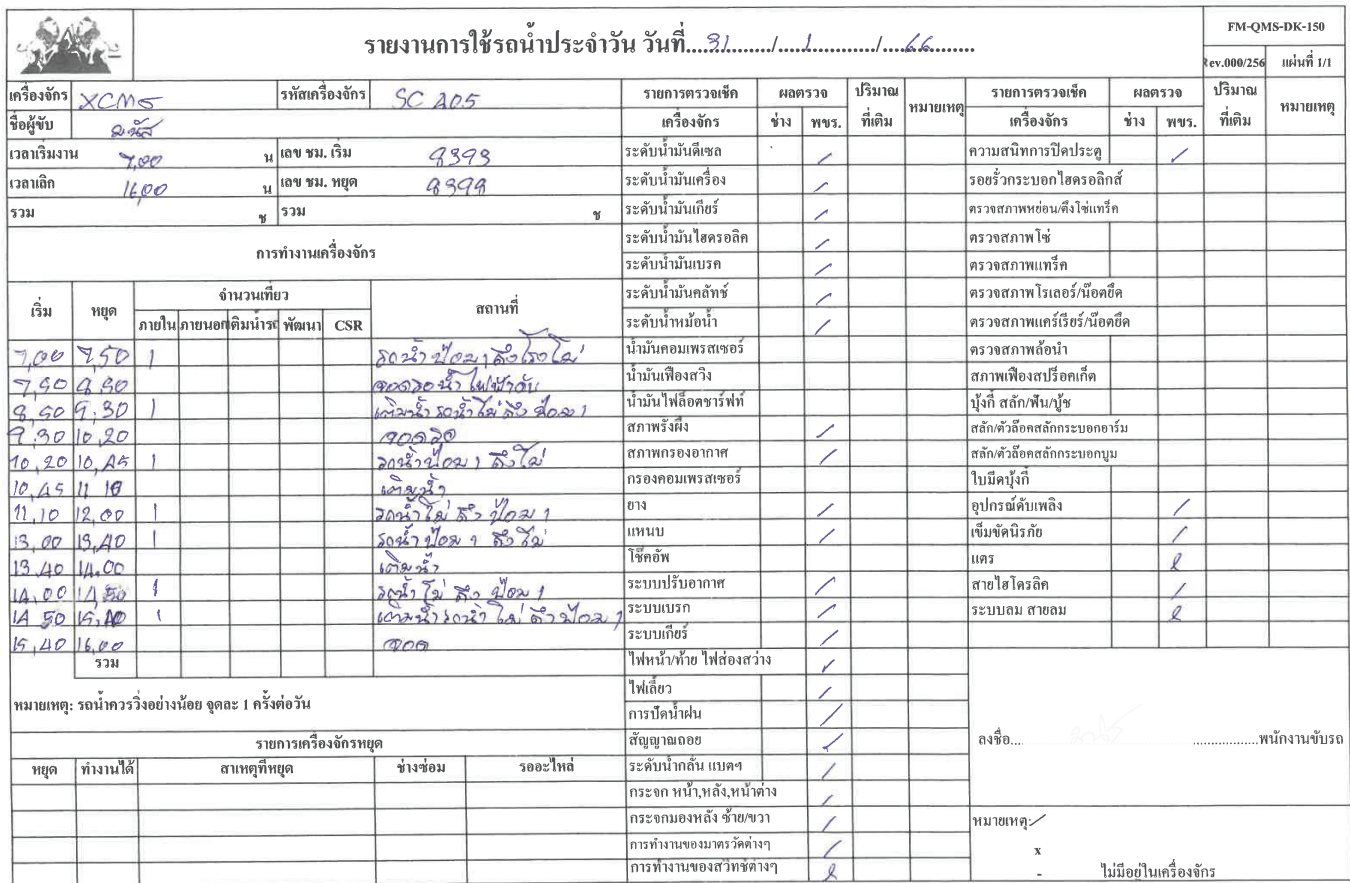 รายงานการใช้รถน้ำประจำวัน วันที่....31........../......1............./....66..........
FM-QMS-DK-150
Rev.000/256 แผ่นที่ 1/1
เครื่องจักร XCMG รหัสเครื่องจักร SC A05
ชื่อผู้ขับ มนัส
เวลาเริ่มงาน 7,00 น เลข ชม. เริ่ม
เวลาเลิก 16,00 น เลข ชม. หยุด
รวม ช รวม ช
การทำงานเครื่องจักร
เริ่ม หยุด จำนวนเที่ยว สถานที่
ภายใน ภายนอก เติมน้ำรถ พัฒนา CSR
7,00 7,50 1 รถน้ำ ป้อม 1 ถึงโรงโม่
7,50 8,50 จอดรอน้ำ ไฟฟ้าดับ
8,50 9,30 1 เติมน้ำ รถน้ำ โม่ ถึง ป้อม 1
9,30 10,20 จอดรอ
10,20 10,45 1 รดน้ำ ป้อม 1 ถึง โม่
10,45 11 10 เติมน้ำ
11,10 12,00 1 รดน้ำ โม่ ถึง ป้อม 1
13,00 13,40 1 รดน้ำ ป้อม 1 ถึง โม่
13,40 14,00 เติมน้ำ
14,00 14,50 1 รดน้ำ โม่ ถึง ป้อม 1
14 50 15,40 1 เติมน้ำ รดน้ำ โม่ ถึง ป้อม 1
15,40 16,00 จอด
รวม
หมายเหตุ: รถน้ำควรวิ่งอย่างน้อย จุดละ 1 ครั้งต่อวัน
รายการเครื่องจักรหยุด
หยุด ทำงานได้ สาเหตุที่หยุด ช่างซ่อม รออะไหล่
รายการตรวจเช็ค ผลตรวจ ปริมาณ หมายเหตุ
เครื่องจักร ช่าง พขร. ที่เติม
ระดับน้ำมันดีเซล /
ระดับน้ำมันเครื่อง /
ระดับน้ำมันเกียร์ /
ระดับน้ำมันไฮดรอลิค /
ระดับน้ำมันเบรค /
ระดับน้ำมันคลัทช์ /
ระดับน้ำหม้อน้ำ /
น้ำมันคอมเพรสเซอร์
น้ำมันเฟืองสวิง
น้ำมันไฟล็อตชาร์ฟท์
สภาพรังผึ้ง /
สภาพกรองอากาศ /
กรองคอมเพรสเซอร์
ยาง /
แหนบ /
โช๊คอัพ
ระบบปรับอากาศ /
ระบบเบรก /
ระบบเกียร์ /
ไฟหน้า/ท้าย ไฟส่องสว่าง /
ไฟเลี้ยว /
การปัดน้ำฝน /
สัญญาณถอย /
ระดับน้ำกลั่น แบตฯ /
กระจก หน้า,หลัง,หน้าต่าง /
กระจกมองหลัง ซ้าย/ขวา /
การทำงานของมาตรวัดต่างๆ /
การทำงานของสวิทช์ต่างๆ
รายการตรวจเช็ค ผลตรวจ ปริมาณ หมายเหตุ
เครื่องจักร ช่าง พขร. ที่เติม
ความสนิทการปิดประตู /
รอยรั่วกระบอกไฮดรอลิกส์
ตรวจสภาพหย่อน/ตึงโซ่แทร็ค
ตรวจสภาพโซ่
ตรวจสภาพแทร็ค
ตรวจสภาพโรเลอร์/น๊อตยึด
ตรวจสภาพแคร์เรียร์/น๊อตยึด
ตรวจสภาพล้อนำ
สภาพเฟืองสปร็อคเก็ต
บุ้งกี๋ สลัก/ฟัน/บู้ช
สลัก/ตัวล๊อคสลักกระบอกอาร์ม
สลัก/ตัวล๊อคสลักกระบอกบูม
ใบมีดบุ้งกี๋
อุปกรณ์ดับเพลิง /
เข็มขัดนิรภัย /
แตร
สายไฮโดรลิค /
ระบบลม สายลม
ลงชื่อ.... ..................พนักงานขับรถ
หมายเหตุ: /
x
- ไม่มีอยู่ในเครื่องจักร